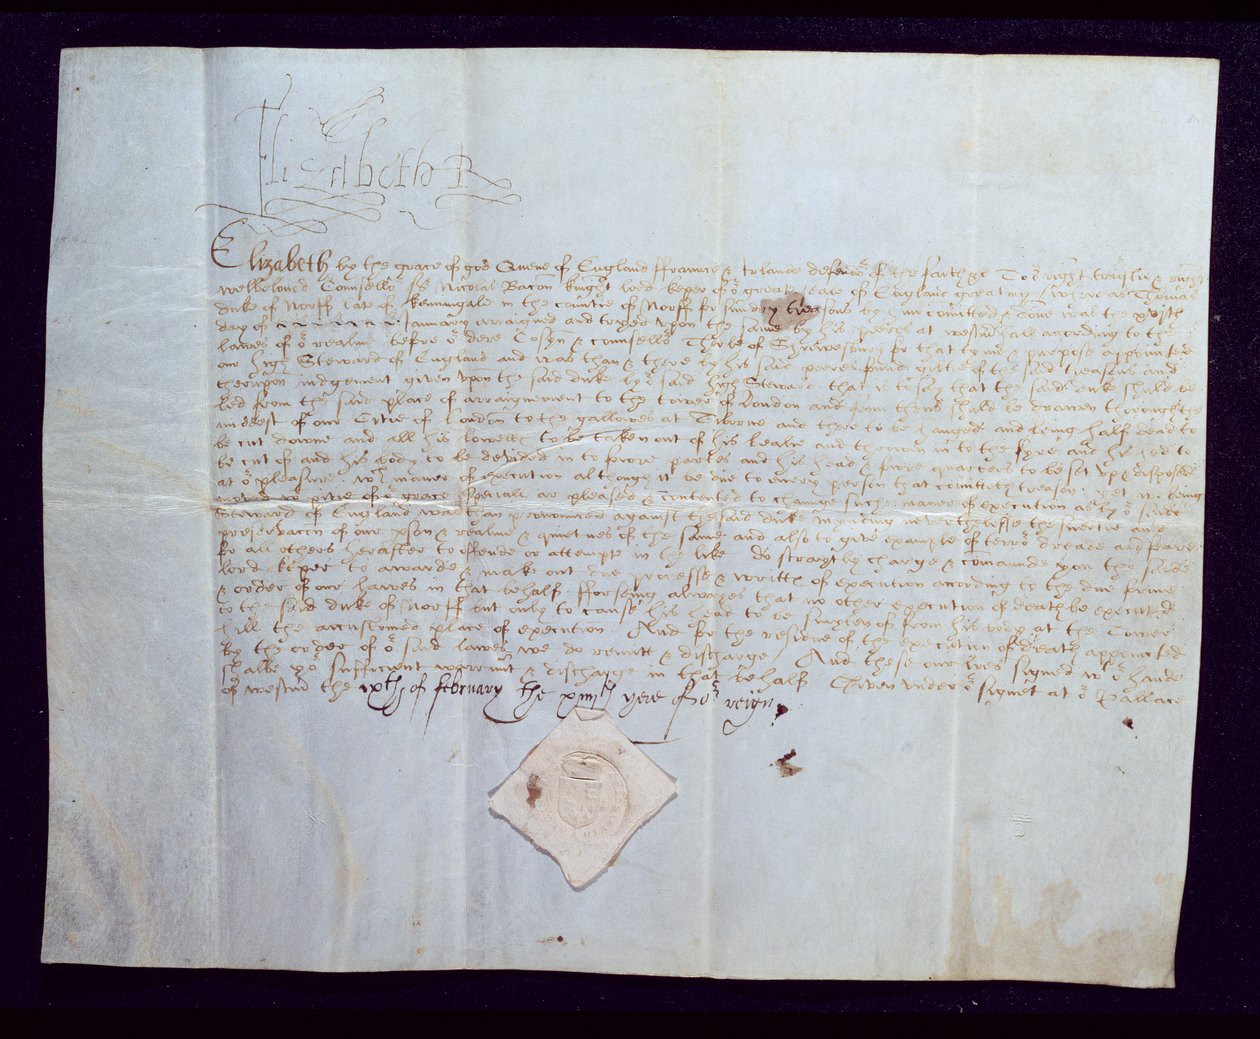 Elizabeth R
Elizabeth by the grace of god Quene of England ffraunce & Irlande defend^r of the faith &c To o^r right trustie & right
welbeloved Counsello^r S^r Nicolas Bacon knight lord keper of o^r great seale of England greeting Where as Thomas
duke of Norff late of kenningale in the countie of Norff for sundry treasons by him comitted & done was the xvjth
day of January arraigned and tryed upon the same by his peeres at westm hall according to the
lawes of o^r realme before o^r dere Cosyn & counsello^r Therle of Shrewesbury for that tyme & purpose appointed
our high Steward of England and was than & there by his said peeres found giltie of the said treasons and
therupon iudgement given upon the said duke by o^r said high Steward that is to say that the said duke shuld be
led from the said place of arraignement to the tower of London and from thens shuld be drawen through the
middest of our Citie of London to the gallowes at Tiborne and there to be hanged and being half dead to
be cut downe and all his bowells to be taken out of his bealie and throwen in to the fyre and his hed to
be cut of and his body to be devided in to fowre partes and his head & fowre quarters to be set up & disposed
at o^r pleasure. w^ch maner of execution although it be due to every person that comitteth treason. yet we being
moved w^t pitie of o^r grace especiall ar pleased & contented to change such maner of execution as by o^r said
Steward of England was than pronounced against the said duke mynding nevertheless the suertie and
preservacin of our p̱son & realme & quietnes of the same. and also to give example of terro^r dreade and feare
for all others herafter to offende or attempte in the like do straytly charge & comaunde you the said
lord keper to awarde & make out due processe & writts of execution according to the due forme
& order of our lawes in that behalf. fforseing alwayes that no other execution of death be executed
to the said duke of Norff but only to cause his head to be smyten of from his body at the Tower
hill the accustomed place of execution And for the residue of the execution of death appointed
by the order of o^r said lawes we do remitt & discharge And these our lres signed w^t o^r hande
shalbe yo^r sufficient warr^unt & discharge in that behalf Given under o^r signet at o^r Pallace
of westm the ixth of february the xiiij^th yere of o^r reign.